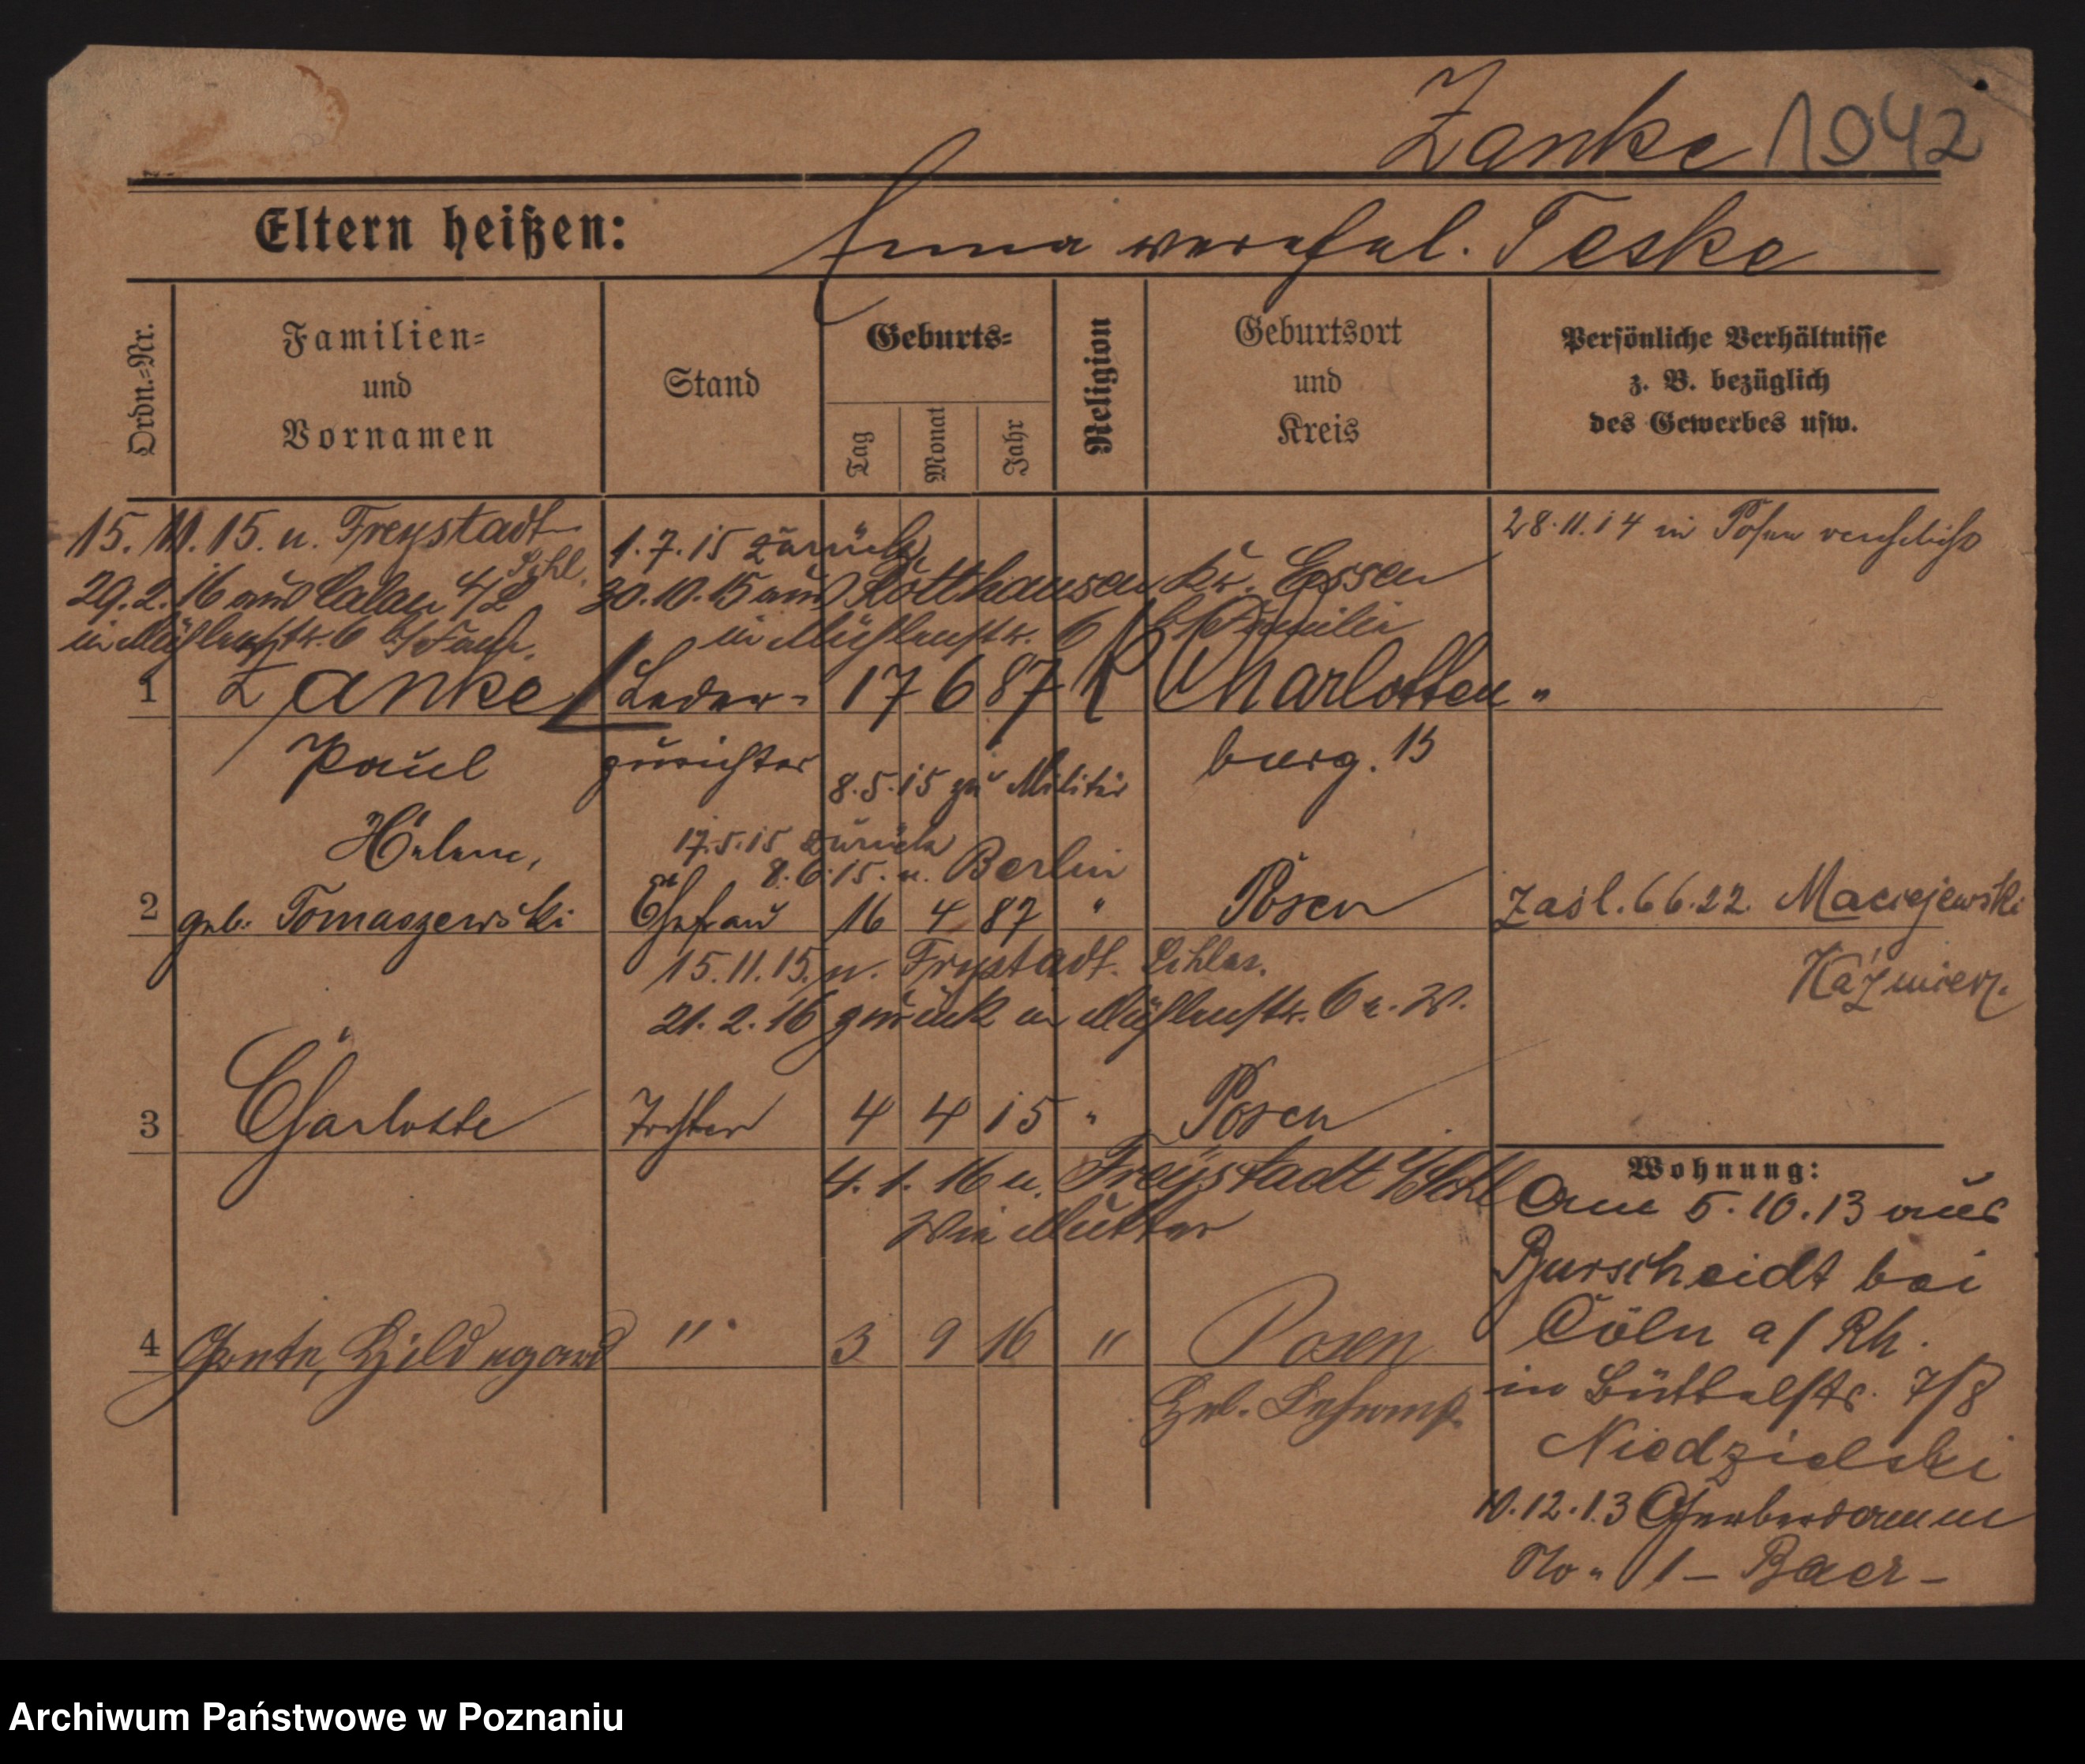 Zanke 1942
Eltern heißen: Anna verehel. Teske
Ordn.=Nr.
Familien=
und
Vornamen
Stand
Geburts=
Tag
Monat
Jahr
Religion
Geburtsort
und
Kreis
Persönliche Verhältnisse
z. B. bezüglich
des Gewerbes usw.
15.11.15. n. Freystadt
Schl.
1.7.15 zurück
28.11.14 in Posen verehelicht
29.2.16 aus Calau
30.10.15 aus Rotthausen Kr. Essen
in Mühlenstr. 6
in Mühlenstr. 6 b/ Familie
1 Zanke Leder- 17 6 87 Charlotten"
Paul zurichter burg. 15
8.5.15 zu Militär
Helene,
17.5.15 zurück
8.6.15. n. Berlin
2 geb. Tomaszewski Ehefrau 16 4 87 " Posen
Zasl. 6 6.22. Maciejewski
Kaźmierz.
15.11.15. n. Freystadt. Schles.
21.2.16 zurück in Mühlenstr. 6 z. W.
3 Charlotte Tochter 4 4 15 " Posen
4.1.16 n. Freystadt i/Schl
wie Mutter
4 Grete, Hildegard " 3 9 16 " Posen
Heb. 
Wohnung:
Am 5.10.13 aus
Burscheidt bei
Cöln a/Rh.
in Büttelstr. 7/8
Niedzielski
10.12.13 Gerberdamm
No " 1 – Baer –
Archiwum Państwowe w Poznaniu